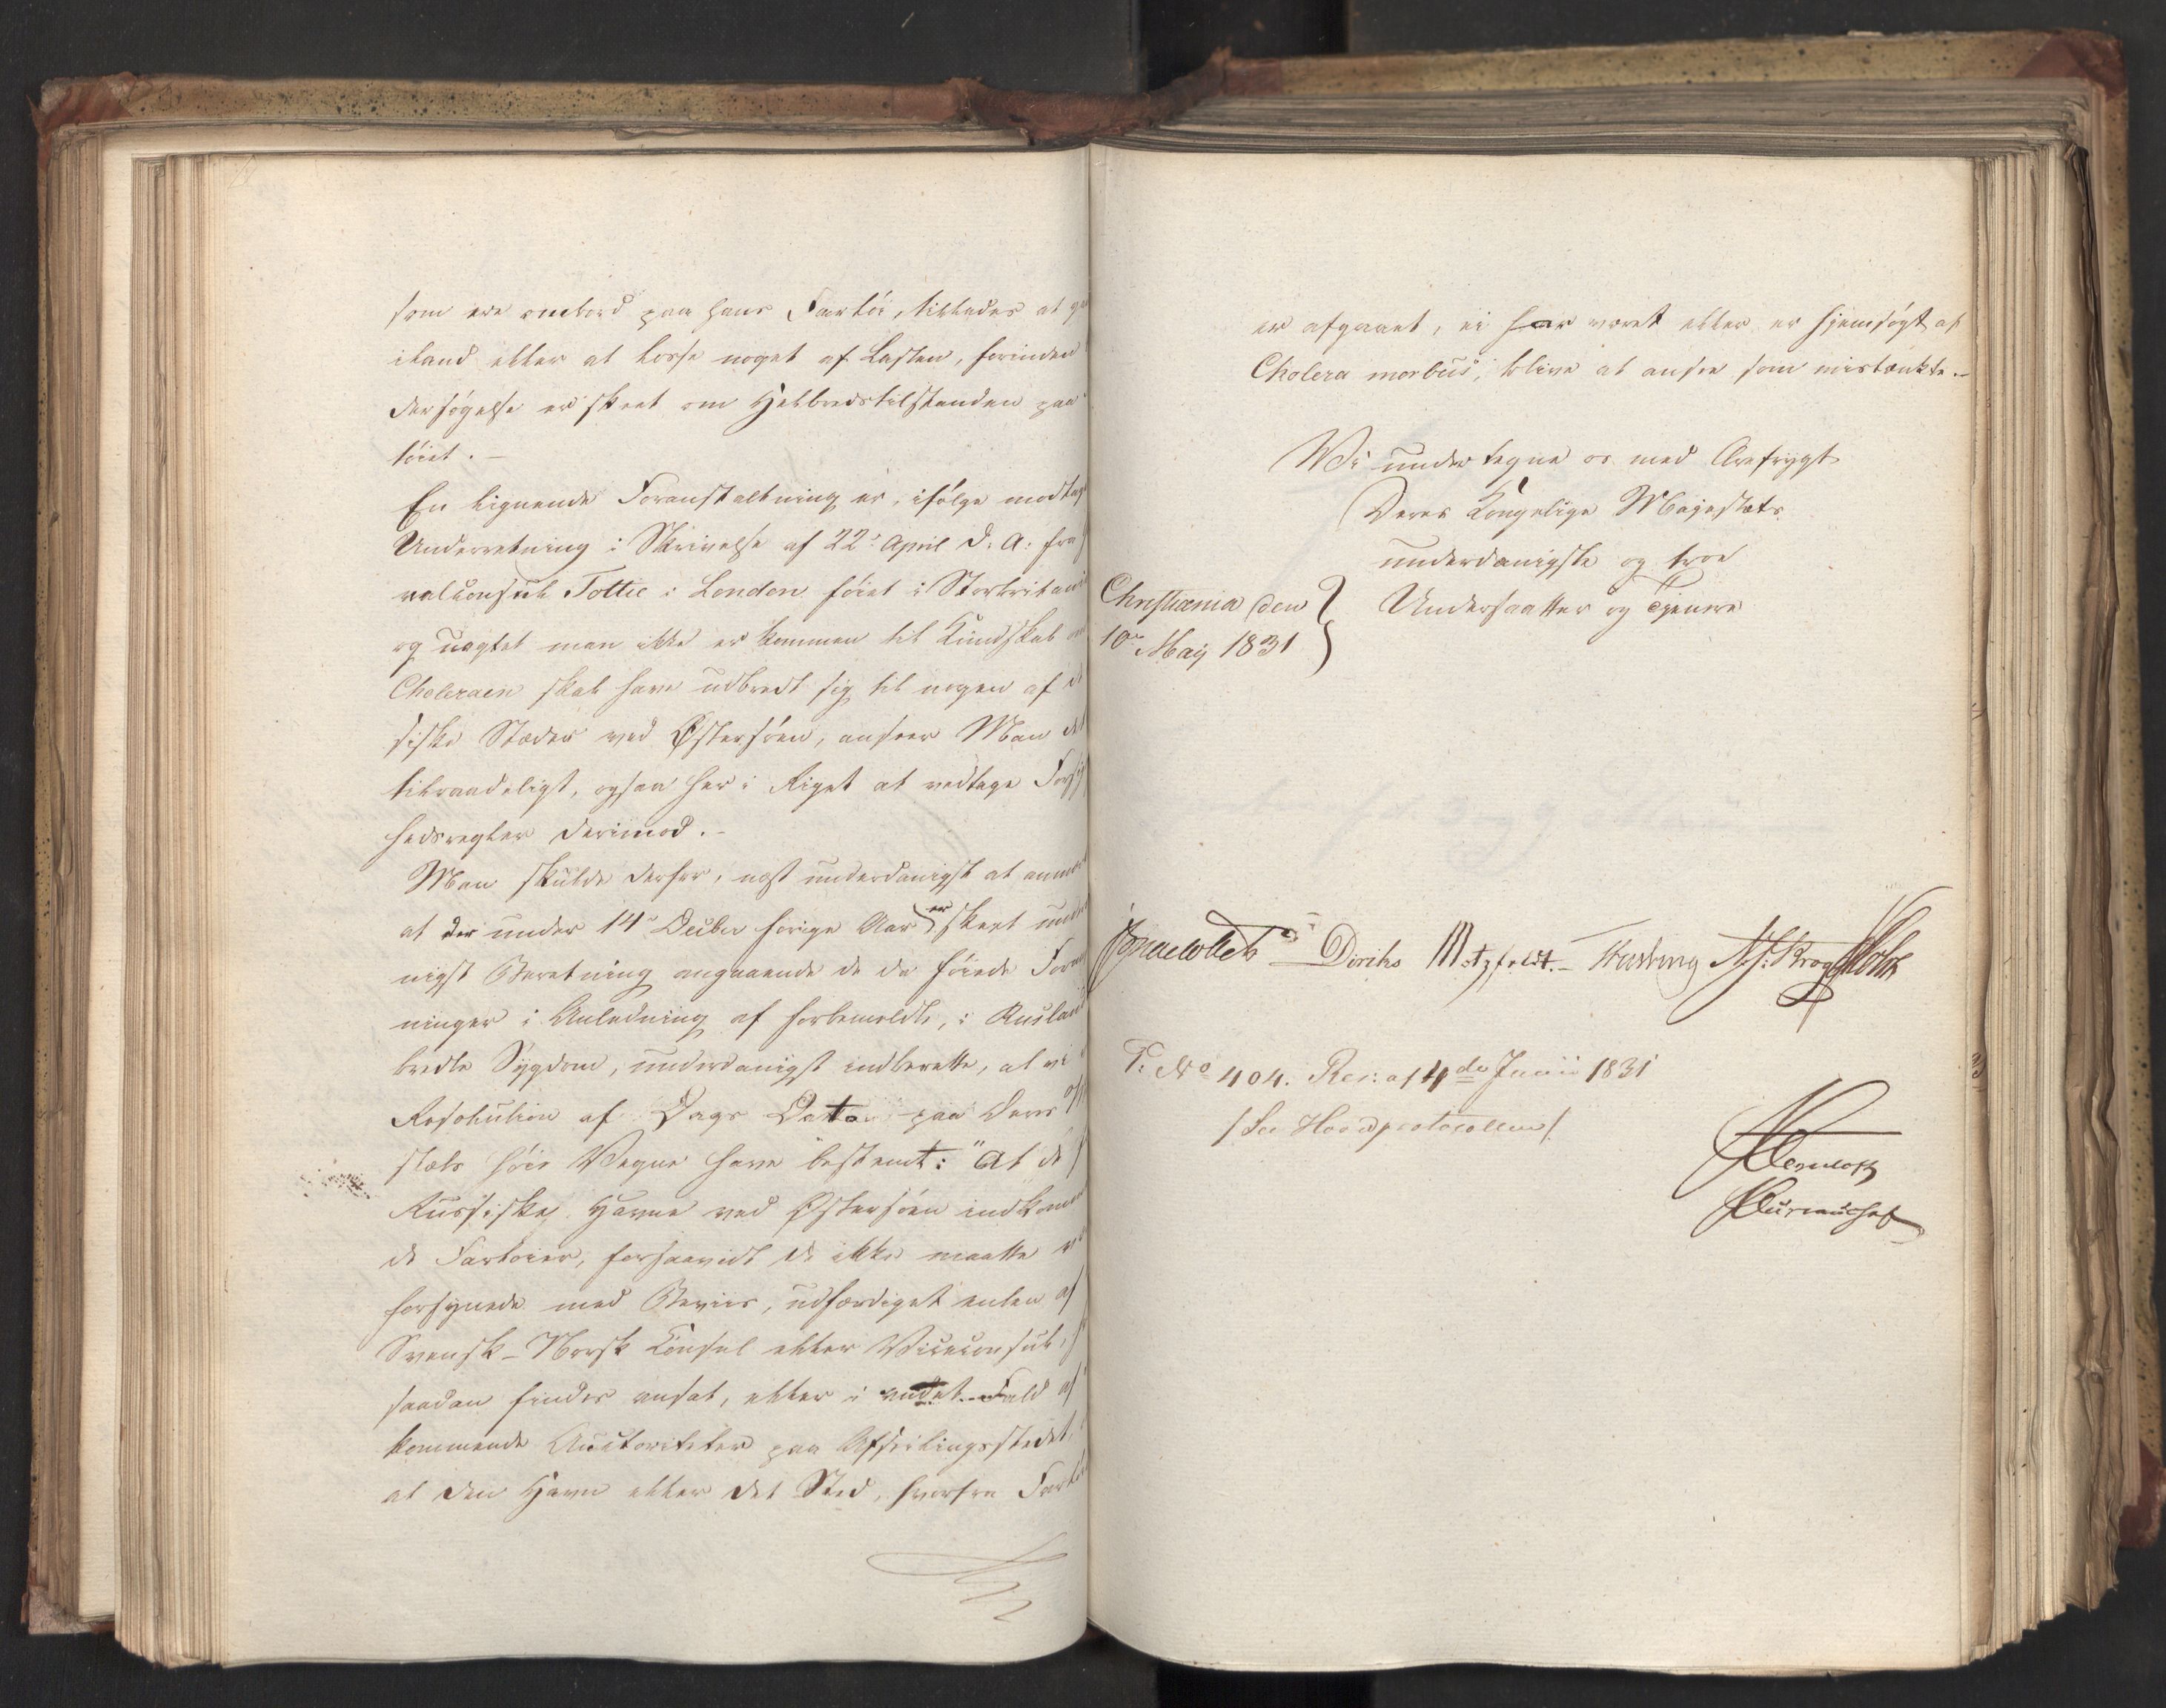 som ere ombord paa hans Fartöi, tillades at g
iland eller at losse noget af Lasten, forinden
dersögelse er skeet om Helbredstilstanden paa
töiet. –
En lignende Foranstaltning er, ifölge modtag
Underretning i Skrivelse af 22de April d. A. fra
ralconsul Tottie i London föiet i Storbritani
og uagtet man ikke er kommen til Kundskab om
Choleraen skal have udbredt sig til nogen af d
siske Stæder ved Østersöen, anseer Man det
tilraadeligt, ogsaa her i Riget at vedtage Forsig
hedsregler derimod. –
Man skulde derfor, næst underdanigst at anmær
at der under 14de Decbr forrige Aar er skeet under
nigst Beretning angaaende de da föiede Foran
ninger i Anledning af forbemeldte, i Rusland
bredte Sygdom, underdanigst indberette, at vi
Resolution af Dags Dato paa Deres
stæts höie Vegne have bestemt: "At de
Russiske Havne ved Østersöen indkomm
de Fartöier, forsaavidt de ikke maatte v
forsynede med Beviis, udfærdiget enten af
Svensk-Norsk Consul eller Viceconsul,
saadan findes ansat, eller i andet Fald af
kommende Auctoriteter paa Afseilingsstedet,
at den Havn eller det Sted, hvorfra Fartöi
er afgaaet, ei har været eller er hjemsögt af
Cholera morbus, blive at ansee som mistænkte. –
Vi undertegne os med Ærefrygt
Deres Kongelige Majestæts
underdanigste og troe
Undersaatter og Tjenere
Christiania den
10de Maij 1831
Collett Diriks Motzfeldt. – Treschow Krog Holst
P. No 404. Res: af 4de Junii 1831
/ See Hovedprotocollen /.
Bureauchef